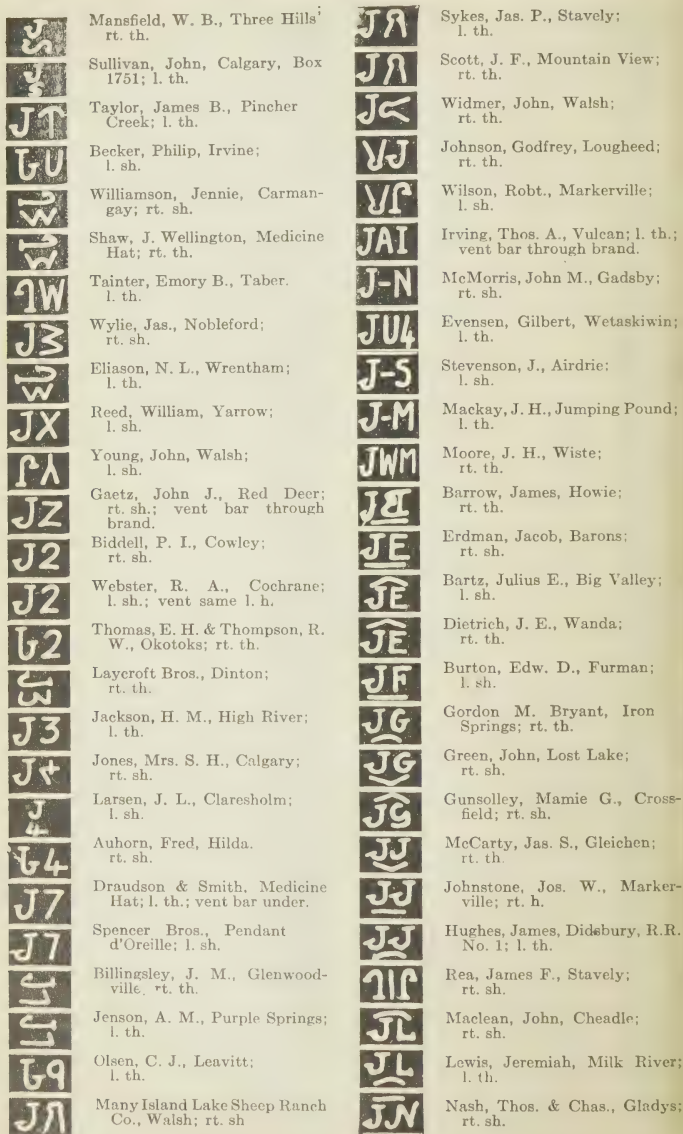 Mansfield, W. B., Three Hills'
rt. th.
Sullivan, John, Calgary, Box
1751; l. th.
JT Taylor, James B., Pincher
Creek; l. th.
Becker, Philip, Irvine;
l. sh.
Williamson, Jennie, Carman-
gay; rt. sh.
Shaw, J. Wellington, Medicine
Hat; rt. th.
Tainter, Emory B., Taber.
l. th.
Wylie, Jas., Nobleford;
rt. sh.
Eliason, N. L., Wrentham;
l. th.
JX Reed, William, Yarrow;
l. sh.
Young, John, Walsh;
l. sh.
JZ Gaetz, John J., Red Deer;
rt. sh.; vent bar through
brand.
J2 Biddell, P. I., Cowley;
rt. sh.
J2 Webster, R. A., Cochrane;
l. sh.; vent same l. h.
Thomas, E. H. & Thompson, R.
W., Okotoks; rt. th.
Laycroft Bros., Dinton;
rt. th.
J3 Jackson, H. M., High River;
l. th.
J4 Jones, Mrs. S. H., Calgary;
rt. sh.
J
4 Larsen, J. L., Claresholm;
l. sh.
Auhorn, Fred, Hilda.
rt. sh.
J7 Draudson & Smith, Medicine
Hat; l. th.; vent bar under.
J7 Spencer Bros., Pendant
d'Oreille; l. sh.
Billingsley, J. M., Glenwood-
ville, rt. th.
Jenson, A. M., Purple Springs;
l. th.
Olsen, C. J., Leavitt;
l. th.
Many Island Lake Sheep Ranch
Co., Walsh; rt. sh
Sykes, Jas. P., Stavely;
l. th.
Scott, J. F., Mountain View;
rt. th.
Widmer, John, Walsh;
rt. th.
Johnson, Godfrey, Lougheed;
rt. th.
Wilson, Robt., Markerville;
l. sh.
JAI Irving, Thos. A., Vulcan; l. th.;
vent bar through brand.
J-N McMorris, John M., Gadsby;
rt. sh.
JU4 Evensen, Gilbert, Wetaskiwin;
l. th.
J-S Stevenson, J., Airdrie;
l. sh.
J-M Mackay, J. H., Jumping Pound;
l. th.
JWM Moore, J. H., Wiste;
rt. th.
Barrow, James, Howie;
rt. th.
JE Erdman, Jacob, Barons;
rt. sh.
JE Bartz, Julius E., Big Valley;
l. sh.
JE Dietrich, J. E., Wanda;
rt. th.
JF Burton, Edw. D., Furman;
l. sh.
JG Gordon M. Bryant, Iron
Springs; rt. th.
JG Green, John, Lost Lake;
rt. sh.
JG Gunsolley, Mamie G., Cross-
field; rt. sh.
JJ McCarty, Jas. S., Gleichen;
rt. th.
JJ Johnstone, Jos. W., Marker-
ville; rt. h.
JJ Hughes, James, Didsbury, R.R.
No. 1; l. th.
Rea, James F., Stavely;
rt. sh.
JL Maclean, John, Cheadle;
rt. sh.
JL Lewis, Jeremiah, Milk River;
l. th.
JN Nash, Thos. & Chas., Gladys;
rt. sh.